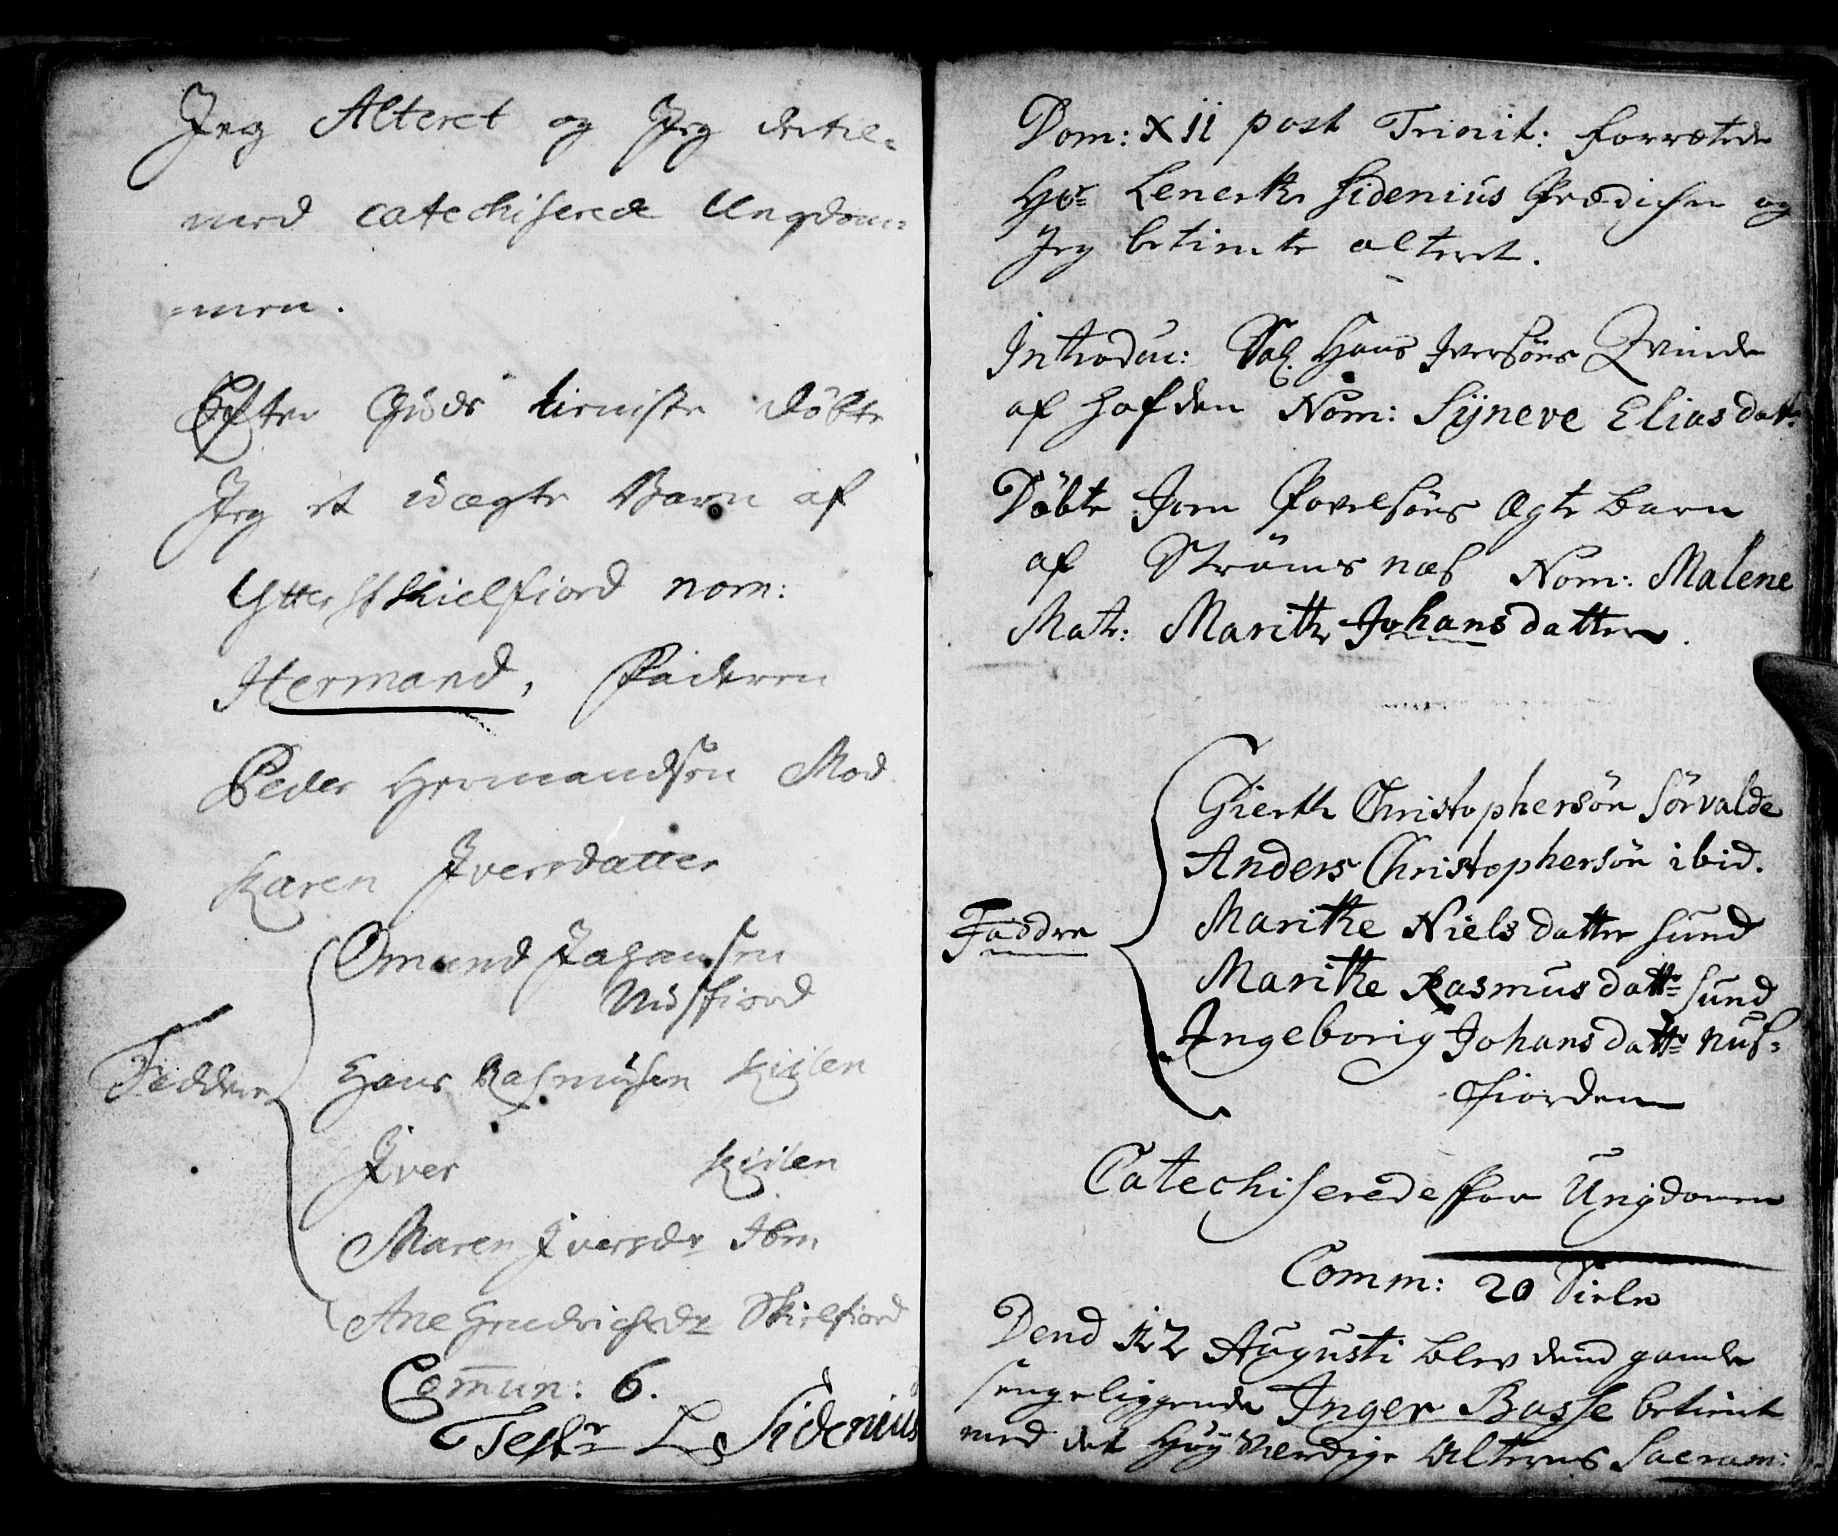 Jeg Alteret og Jeg dertil-
med catechiserede Ungdom-
-men.
Efter Guds tieniste döbte
Jeg et uægte Barn af
Ytter Skielfiord nom:
Hermand, Faderen
Peder Hermandsen Mod
Karen Iversdatter
Faddere
Omund Johansen
Nusfiord
Hans Rasmusen Kiilen
Iver Kiilen
Maren Iversdr Ibm
Ane Hendrichsdr Skielfiord
Com̄un: 6.
Test L Sidenius
Dom: XII post Trinit: forrætede
Hr Lenerth Sidenius Prædichen og
Jeg betiente alteret.
Introduc: Sal. Hans Iversöns Qvinde
af Hafden Nom: Syneve Eliasdatt:
Döbte Joen Povelsöns Ægte barn
af Strömsnæs Nom: Malene
Matr: Marithe Johansdatter.
Faddre
Gierth Christophersön Sörvalde
Anders Christophersön ibid.
Marithe Nielsdatter Sund
Marithe Rasmusdattr Sund
Ingeborig Johansdattr Nus-
fiorden
Catechiserede for Ungdomen
Comm: 20 Siele
Dend 12 Augusti blev dend gamle
sengeliggende Inger Basse betient
med det Høyværdige Alterens Sacram: